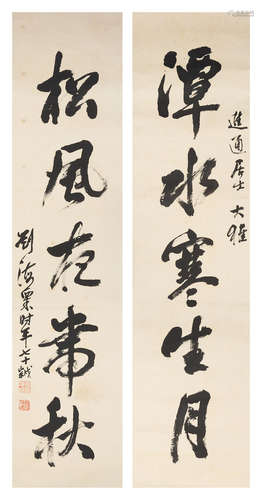 進通居士大雅
潭水寒生月
松風夜帶秋
劉海粟時年七十歲